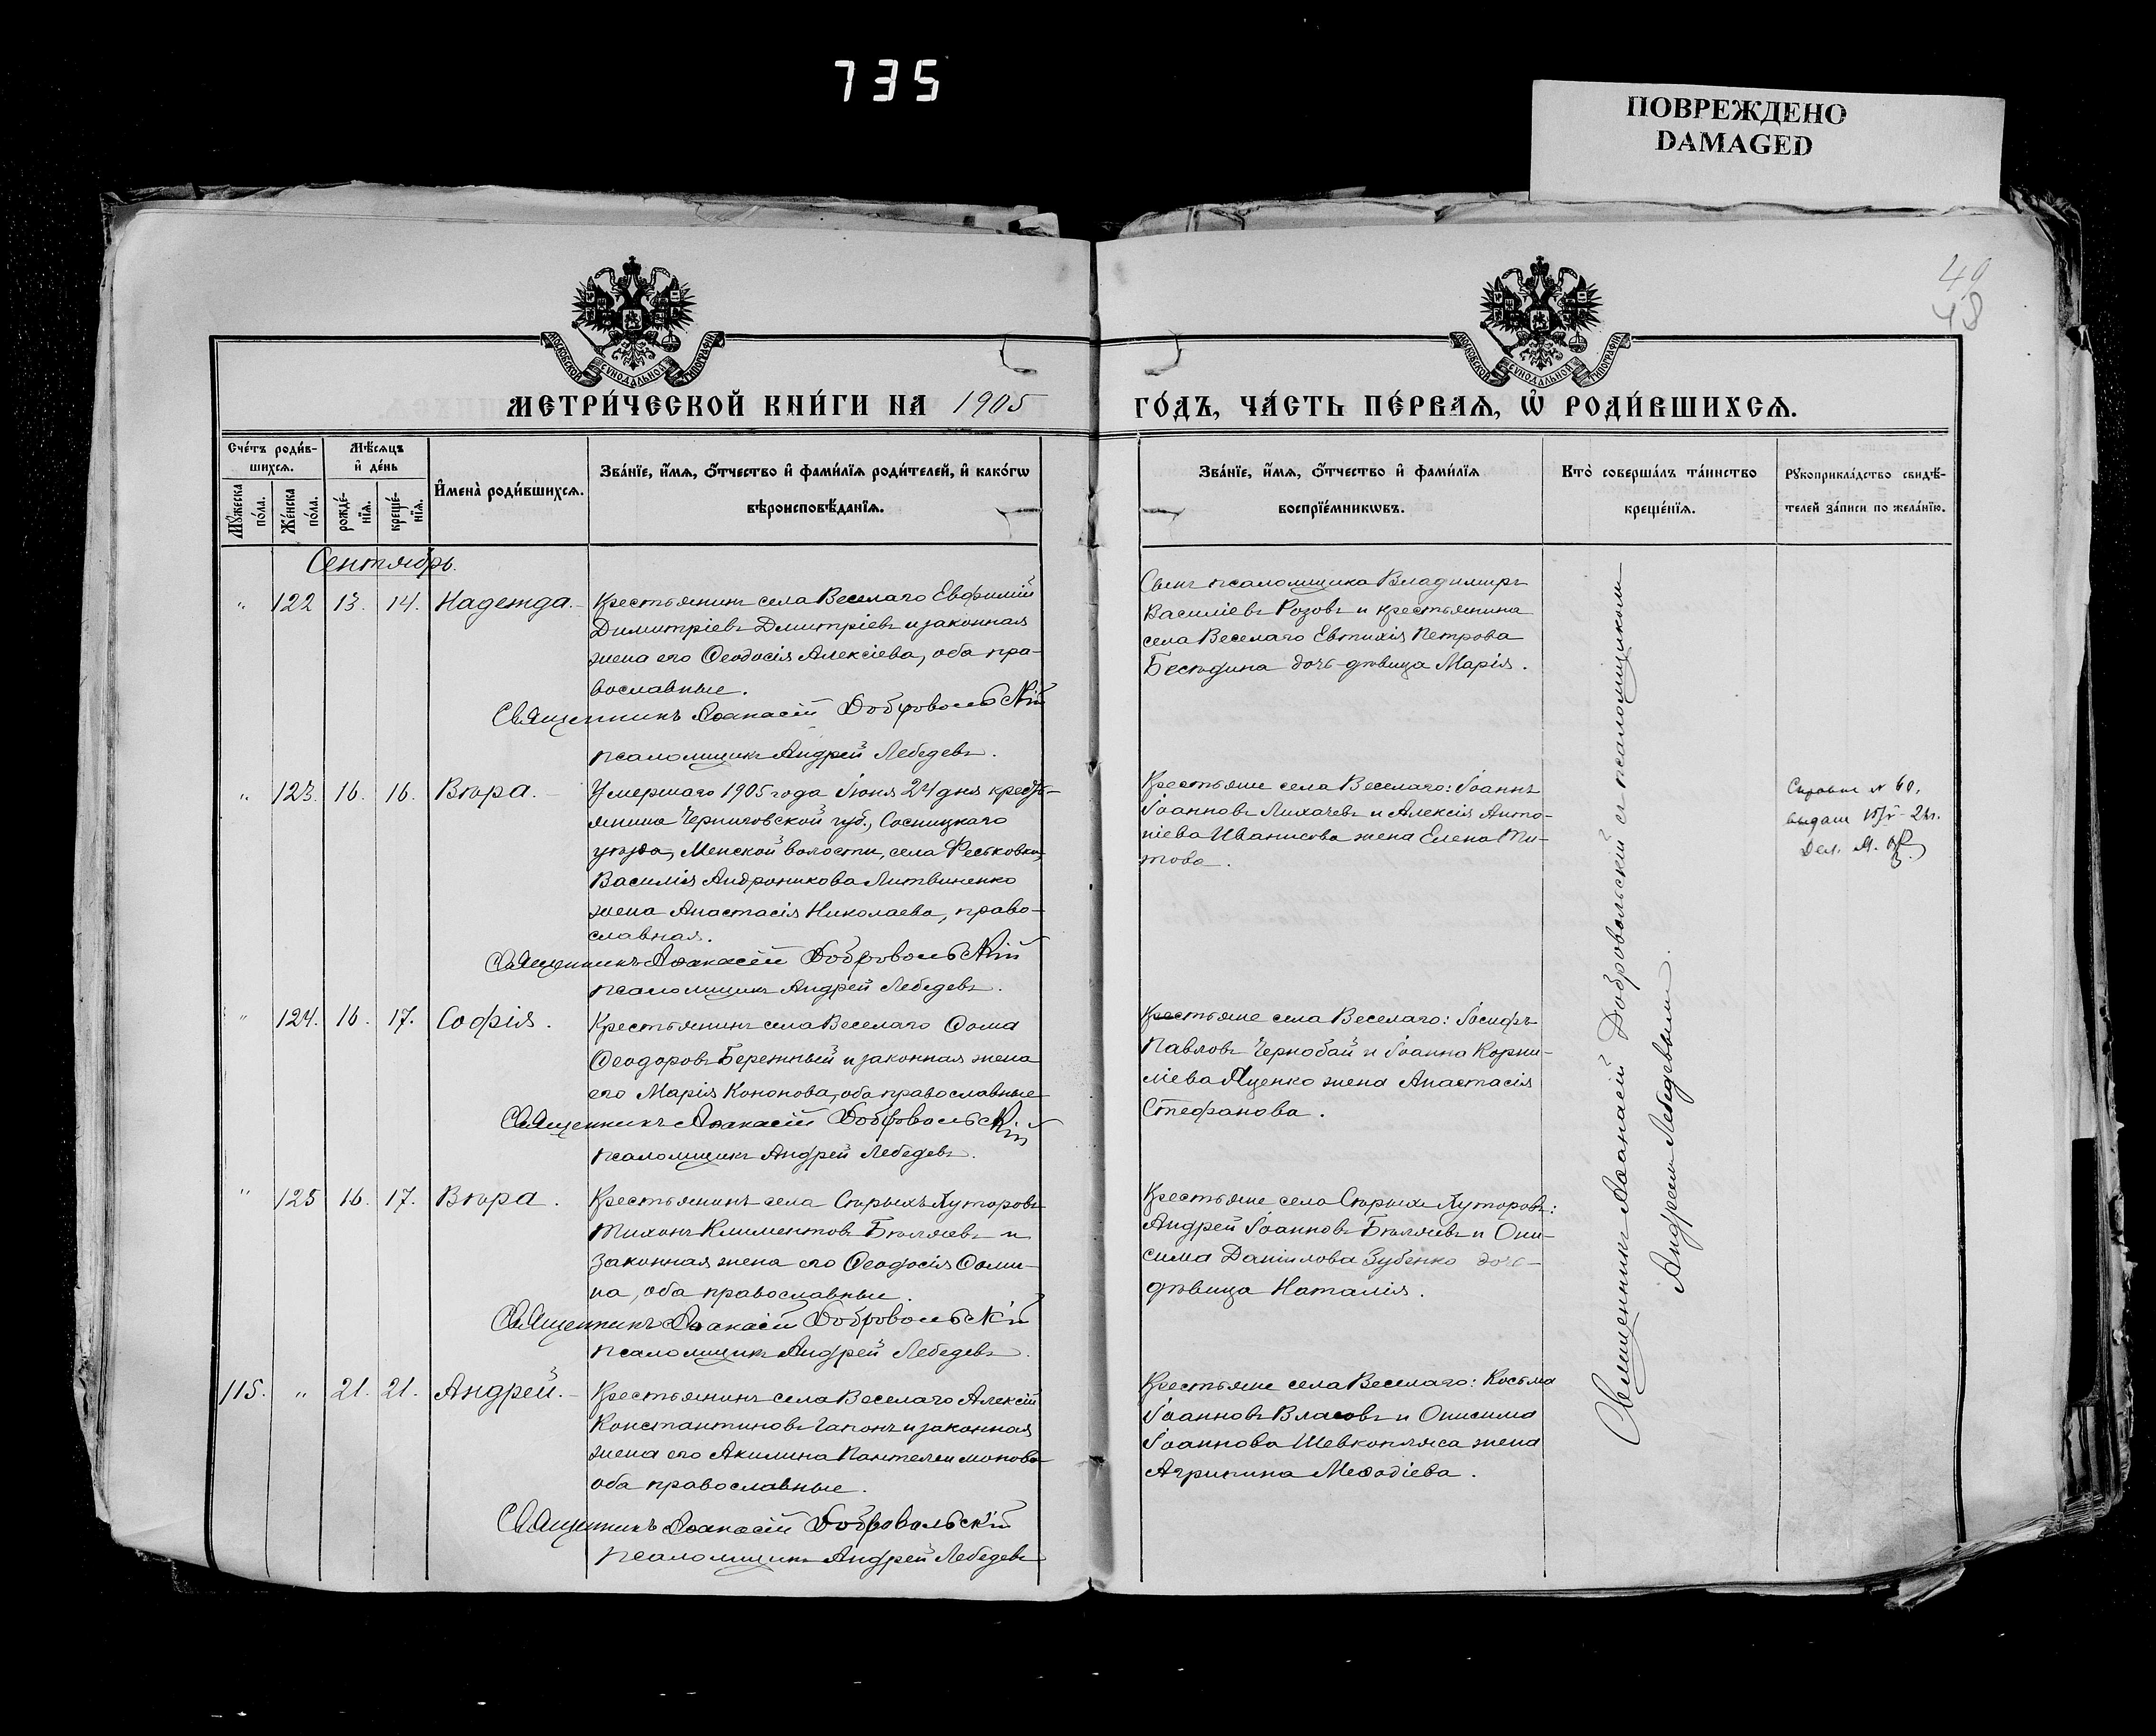 735
ПОВРЕЖДЕНО
DAMAGED
40
48
МОСКОВСКОЙ СУНОДАЛЬНОЙ ТИПОГРАФІИ
МОСКОВСКОЙ СУНОДАЛЬНОЙ ТИПОГРАФІИ
МЕТРИ́ЧЕСКОЙ КНИ́ГИ НА 1905
ГО́ДЪ, ЧА́СТЬ ПЕ́РВАЯ, Ѡ РОДИ́ВШИХСЯ.
Сче́тъ роди́в-
шихся.
Мѣ́сяцъ
и де́нь
Му́жеска
по́ла.
Же́нска
по́ла.
рожде́-
нїя.
креще́-
нїя.
Имена̀ роди́вшихся.
Зва́нїе, и́мя, о́тчество и фами́лїя роди́телей, и како́гѡ
вѣроисповѣ́данїя.
Зва́нїе, и́мя, о́тчество и фами́лїя
воспрїе́мникѡвъ.
Кто̀ соверша́лъ та́инство
креще́нїя.
Рукоприкла́дство свидѣ́-
телей за́писи по жела́нїю.
Сентябрь.
" 122 13. 14. Надежда.
Крестьянинъ села Веселаго Евфимій
Димитріевъ Дмитріевъ и законная
жена его Ѳеодосія Алексіева, оба пра-
вославные.
Священникъ Аѳанасій Добровольскій
псаломщикъ Андрей Лебедевъ.
Сынъ псаломщика Владимиръ
Василіевъ Розовъ и крестьянина
села Веселаго Евтихія Петрова
Бесѣдина дочь-дѣвица Марія.
" 123. 16. 16. Вѣра.
Умершаго 1905 года Іюня 24 дня кресть-
янина Черниговской губ., Сосницкаго
уѣзда, Менской волости, села Феськовки,
Василія Андроникова Литвиненко
жена Анастасія Николаева, право-
славная.
Священникъ Аѳанасій Добровольскій
псаломщикъ Андрей Лебедевъ.
Крестьяне села Веселаго: Іоаннъ
Іоанновъ Лихачевъ и Алексія Анто-
ніева Иванисова жена Елена Ти-
това.
№ 60.
" 124. 16. 17. Софія.
Крестьянинъ села Веселаго Ѳома
Ѳеодоровъ Бережный и законная жена
его Марія Кононова, оба православные
Священникъ Аѳанасій Добровольскій
псаломщикъ Андрей Лебедевъ.
Крестьяне села Веселаго: Іосифъ
Павловъ Чернобай и Іоанна Корни-
ліева Яценко жена Анастасія
Стефанова.
" 125 16. 17. Вѣра.
Крестьянинъ села Старыхъ Хуторовъ
Тихонъ Климентовъ Бѣляевъ и
законная жена его Ѳеодосія Ѳоми-
на, оба православные.
Священникъ Аѳанасій Добровольскій
псаломщикъ Андрей Лебедевъ.
Крестьяне села Старыхъ Хуторовъ:
Андрей Іоанновъ Бѣляевъ и Они-
сима Даніилова Зубенко дочь-
дѣвица Наталія.
115. " 21. 21. Андрей.
Крестьянинъ села Веселаго Алексій
Константиновъ Гапонъ и законная
жена его Акилина Пантелеимонова
оба православные.
Священникъ Аѳанасій Добровольскій
псаломщикъ Андрей Лебедевъ
Крестьяне села Веселаго: Косьма
Іоанновъ Власовъ и Онисима
Іоаннова Шевкопляса жена
Агрипина Меѳодіева.
Священникъ Аѳанасій Добровольскій съ псаломщикомъ
Андреемъ Лебедевымъ.